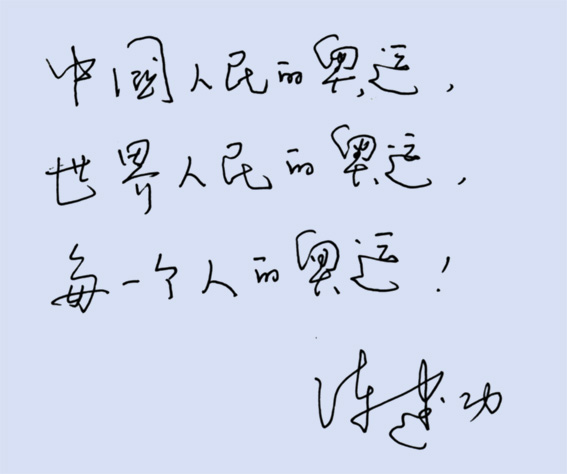 中國人民的奥运，
世界人民的奥运，
每一个人的奥运！
陈建功